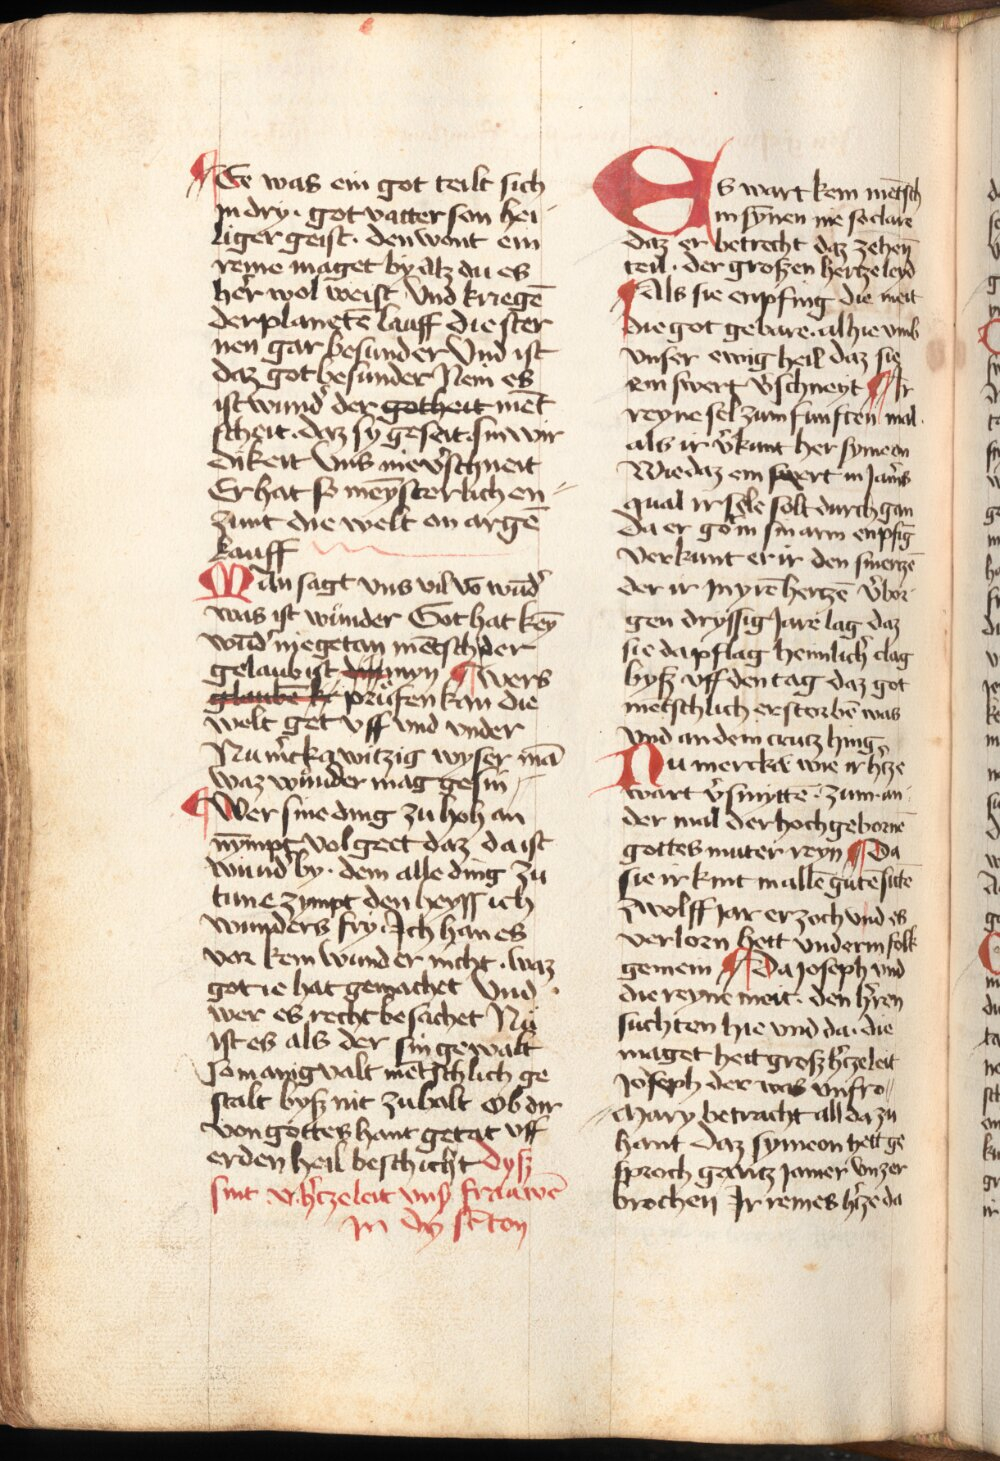 Ee was ein got teilt sich
In dry · got vatter son hei
liger geist · den wont ein
reine maget by alz du es
her wol weist Vnd kriegē
der planetē lauff die ster
nen gar besunder Vnd ist
daz got besunder Nein es
ist wund' der gotheit mēt
scheit · daz sy geseit · sin wir
dikeit Vns nie v'schneit
Er hat so meysterlich en
zunt die welt on argē
kauff
Man sagt vns vil vō wūd'
was ist wunder Got hat key
wūd' nie getan mētsch der
gelaub ist myn Wers
prüfen kan die
welt get vff vnd vnder
Nu m'cka witzig wyser mā
waz wunder mag gesin
Wer sine ding zu hoh an
nympt volget daz da ist
wund' by · dem alle ding zu
tune zympt den heyss ich
wunders fry · Ich han es
vor kein wunder nicht · waz
got ie hat gemachet Vnd
wer es recht besachet Nu
ist es als der sin gewalt
so manigualt mētschlich ge
stalt bysz nit zu balt Ob dir
von gottes hant getat vff
erden heil beschicht Dysz
sint v h'tzeleit vns' frauwē
In dy st'ton
Es wart kein mētsch
in synen nie so clare
daz er betrecht daz zehen
teil · der groszen hertzeleyd
Als sie enpfing die meit
die got gebare · al hie vmb
vnser ewig heil daz sie
ein swert v'schneyt Ir
reyne sel zum funften mal
als ir v'kunt her symeon
Wie daz ein swert in jam's
qual ir sele solt durch gan
Da er go in sin arm enpfig
Verkunt er ir den smertzē
der ir In yrē hertzē v'bor
gen dryssig Jare lag daz
sie da pflag heimlich' clag
bysz vff den tag daz got
mētschlich erstorbē was
vnd an dem crutz hing
Nu mercka wie ir h'tze
wart v'smytte · zum an
der mal der hochgebornē
gottes muter reyn Da
sie ir kint in allē gutē sitte
zwolff jar erzoch vnd es
verlorn hett vnderm folk
gemein Da Joseph vnd
die reyne meit · den h'ren
suchten hie vnd da · die
maget hett grosz h'tzeleit
Joseph der was vnfro
Mary betracht all da zu
hant Daz symeon hett ge
sproch gantz Jamer vnzer
brochen Ir reines h'tze da